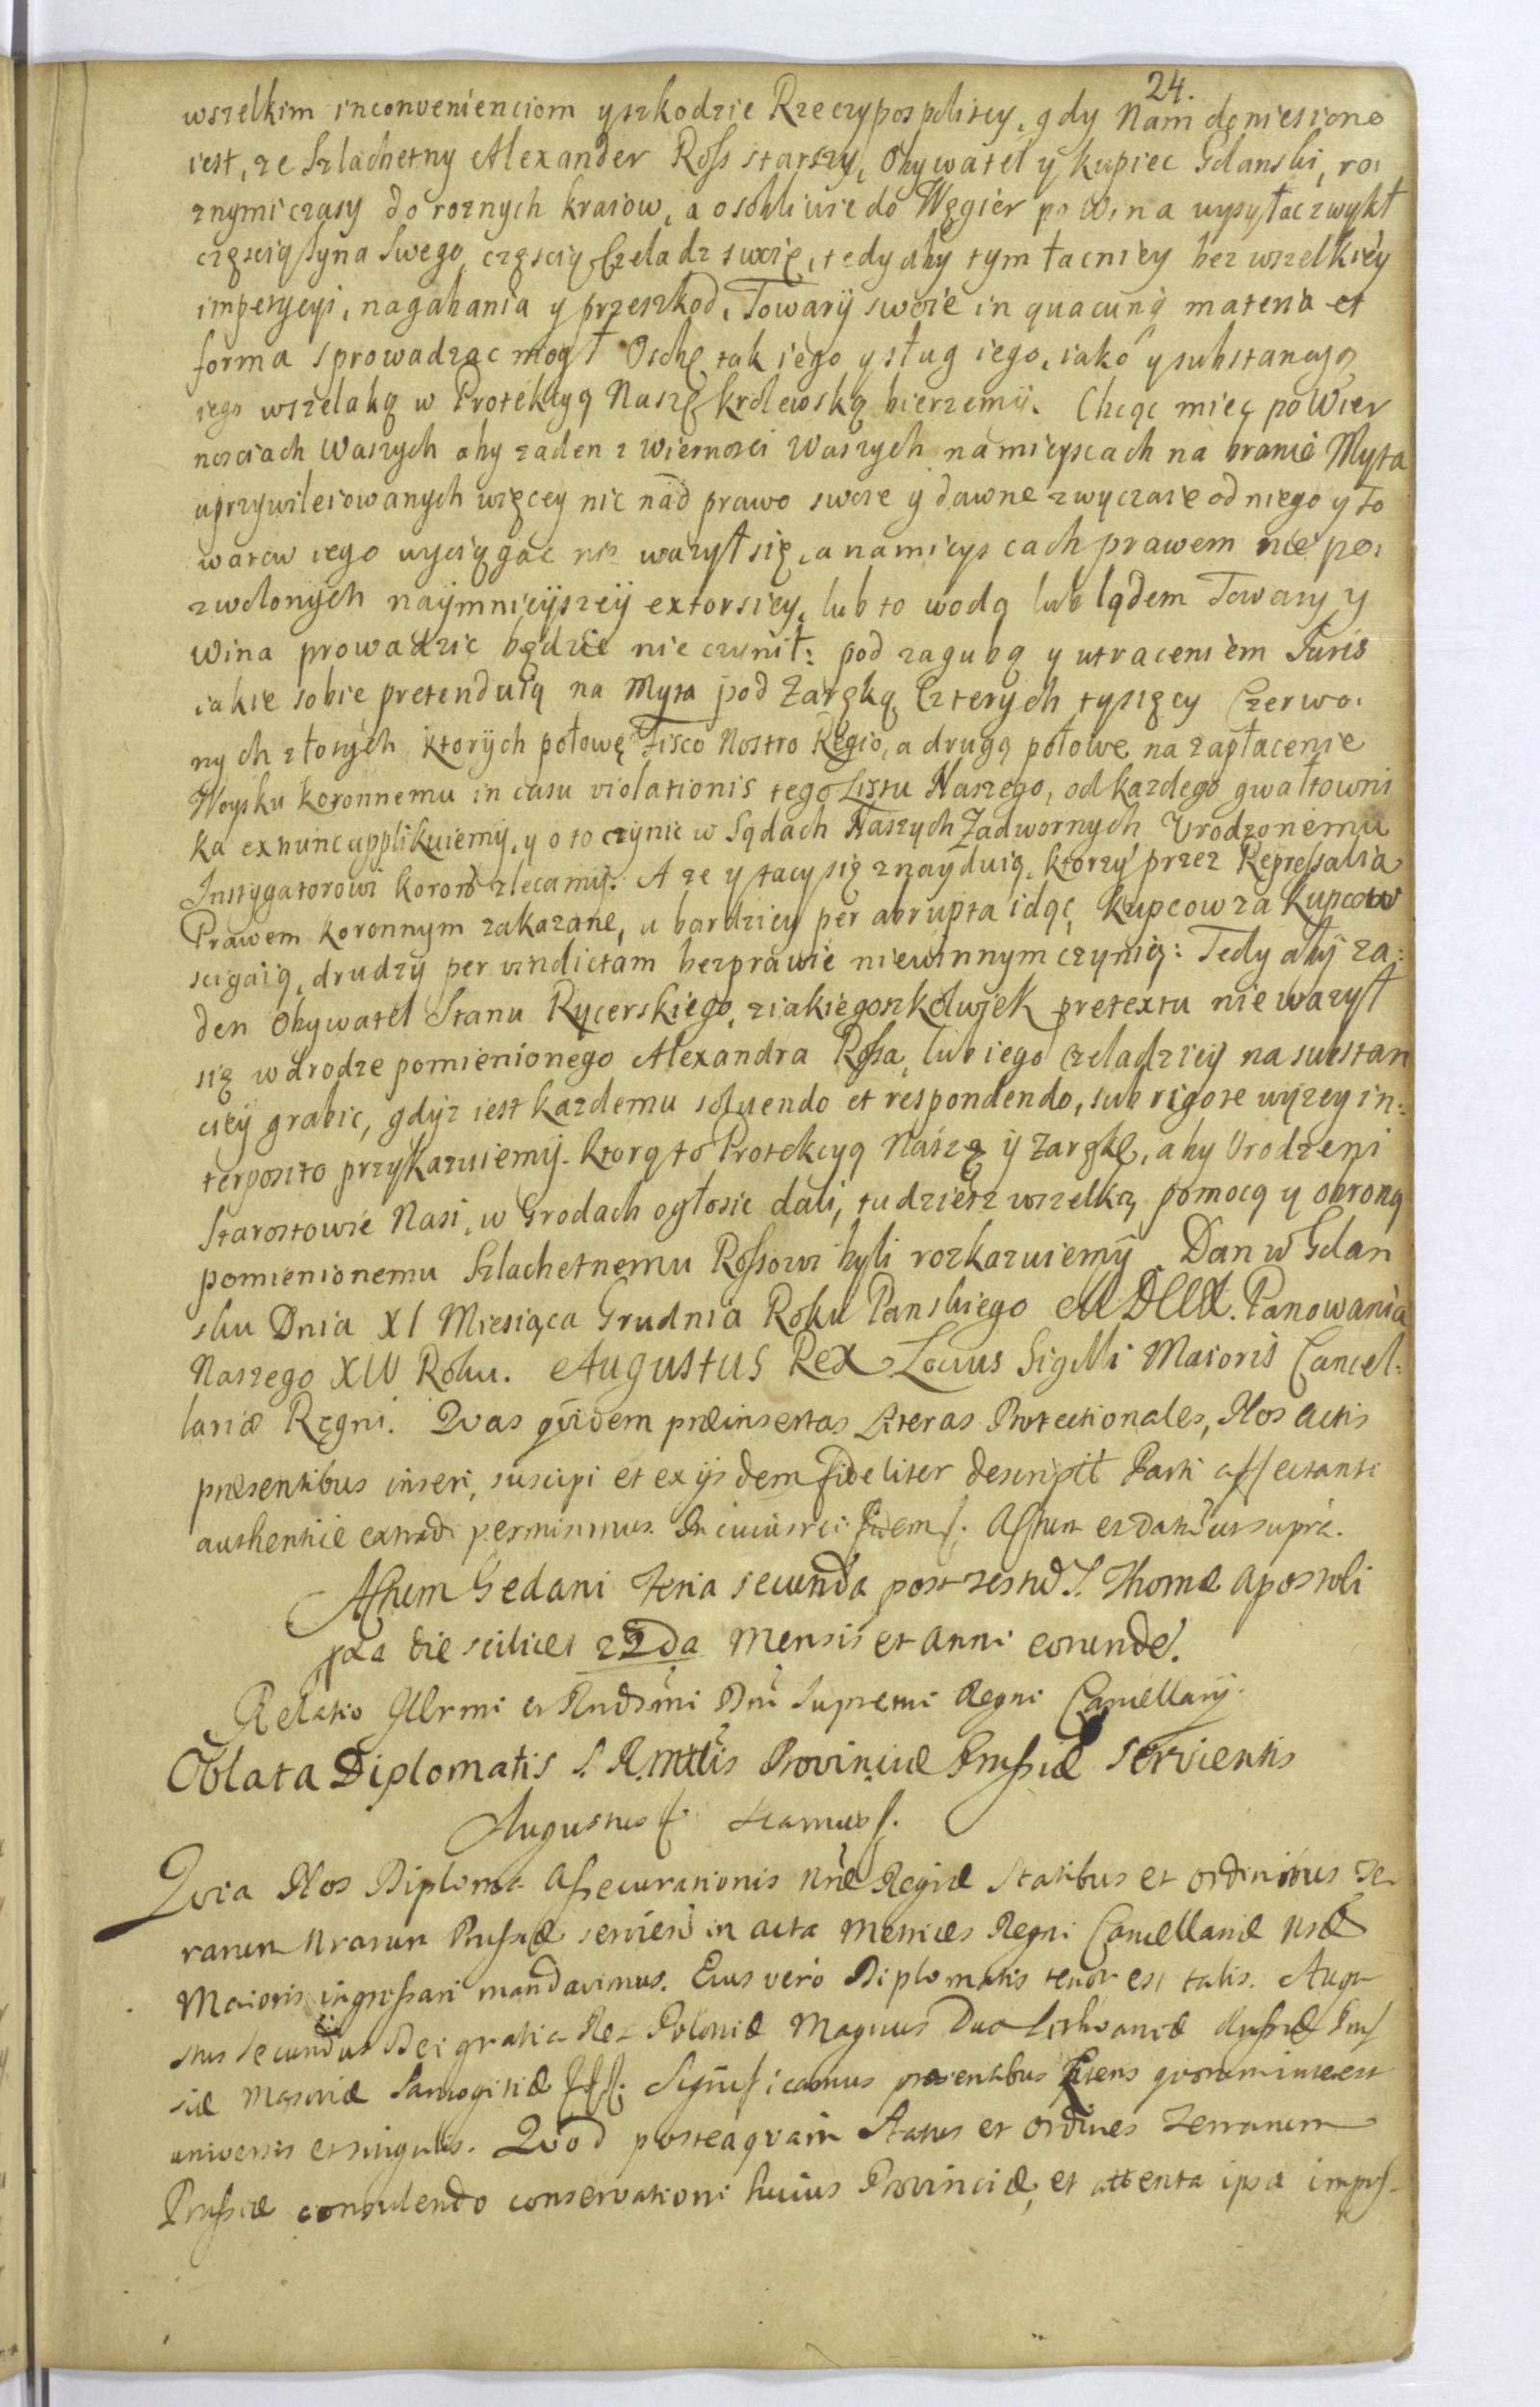 24.
wszelkim inconvenienciom y szkodzie Rzeczypospolitey, gdy Nam doniesiono
iest, ze Szlachetny Alexander Ross starszy, Obywatel y kupiec Gdanski, ro:
znymi czasy do roznych kraiow, a osobliwie do Węgier po Wina wysyłac zwykł
częscią Syna Swego, częscią Czeladz swoię, tedy aby tym łacniey bez wszelkiey
impetycyi, nagabania y przeszkod, Towary swoie in quacunq materia et
forma sprowadzac mogł Osobę tak iego y sług iego, iako y substancyą
iego wszelaką w Protekcyą Naszę krolewską bierzemy. Chcąc miec po Wier
nosciach Waszych aby zaden z Wiernosci Waszych na mieyscach na branie Myta
uprzywileiowanych więcey nic nad prawo swoie y dawne zwyczaie od niego y To
warow iego wyciągac nie wazył się, a na mieyscach prawem nie po:
zwolonych naymnieyszey extorsiey, lub to wodą lub lądem Towary y
Wina prowadzic będzie nie czynił: pod zagubą y utraceniem Juris
iakie sobie pretenduią na Myta pod Zarękę Czterych tysięcy Czerwo:
nych złotych ktorych połowę Fisco Nostro Regio, a drugą połowe na zapłacenie
Woysku koronnemu in casu violationis tego Listu Naszego, od kazdego gwałtowni
ka exnunc applikuiemy, y o to czynic w Sądach Naszych Zadwornych Urodzonemu
Instygatorowi koron zlecamy. A ze y tacy się znayduią, ktorzy przez Repressalia
Prawem koronnym zakazane, a bardziey per abrupta idąc, kupcow za kupcow
scigaią, drudzy per vindictam bezprawie niewinnym czynią: Tedy aby za:
den Obywatel Stanu Rycerskiego, z iakiegoszkolwiek pretextu nie wazył
się w drodze pomienionego Alexandra Rossa, lub iego czeladziey na substan
ciey grabic, gdyz iest kazdemu solvendo et respondendo, sub rigore wyzey in:
terposito przykazuiemy. Ktorą to Protekcyą Naszę y Zarękę, aby Urodzeni
Starostowie Nasi, w Grodach ogłosic dali, tudziesz wszelką pomocą y obroną
pomienionemu Szlachetnemu Rossowi byli rozkazuiemy Dan w Gdan
sku Dnia XI Miesiąca Grudnia Roku Panskiego MDCCX. Panowania
Naszego XIV Roku. Augustus Rex Locus Sigilli Maioris Cancel:
lariæ Regni. Qvas qvidem præinsertas Literas Protectionales, Nos actis
præsentibus inseri, suscipi et ex ijsdem fideliter descriptt Parti affectanti
authentice extradi permisimus. In cuius rei fidem f. Actum et datū ut supra.
Actum Gedani Feria secunda post Festū S. Thomæ Apostoli
die scilicet 22da Mensis et Anni eorundē.
Relatio Illrmi et Rndsmi Dni Supremi Regni Cancellarij.
Oblata Diplomatis S. R. mttis Provinciæ Prussiæ servientis
Augustus f.
Qvia Nos Diploma Assecurationis Nræ Regiæ Statibus et Ordinibus Ter
rarum Nrarum Prussiæ in acta Metrices Regni Cancellariæ Nræ
Maioris ingrossari mandavimus. Eius vero Diplomatis tenor est talis. Augu
stus Secundus Dei gratia Rex Poloniæ Magnus Dux Lithvaniæ Russiæ Prus
siæ Masoviæ Samogitiæ Significamus præsentibus Literis qvorum interest
universis et singulis. Qvod posteaqvam Status et Ordines Terrarum
Prussiæ consulendo conservationi huius Provinciæ, et attenta ipsa impos-